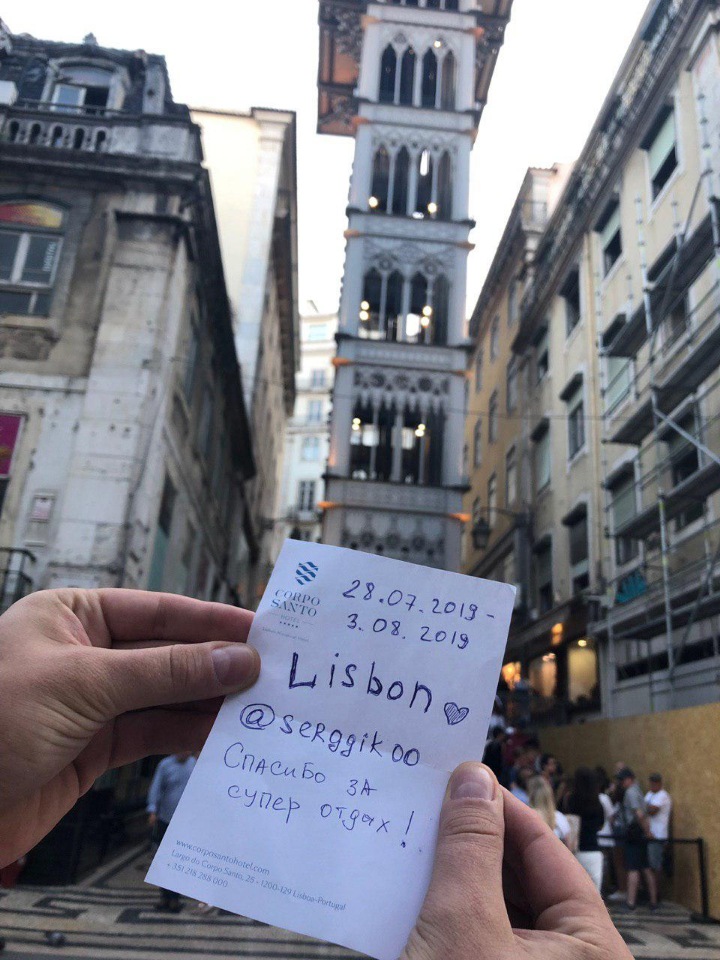 CORPO
SANTO
HOTEL
28.07.2019 -
3.08. 2019
Lisbon ♡
@serggikoo
Спасибо за
супер отдых!
www.corposantohotel.com
Largo do Corpo Santo, 25 - 1200-129 Lisboa-Portugal
+351 218 288 000